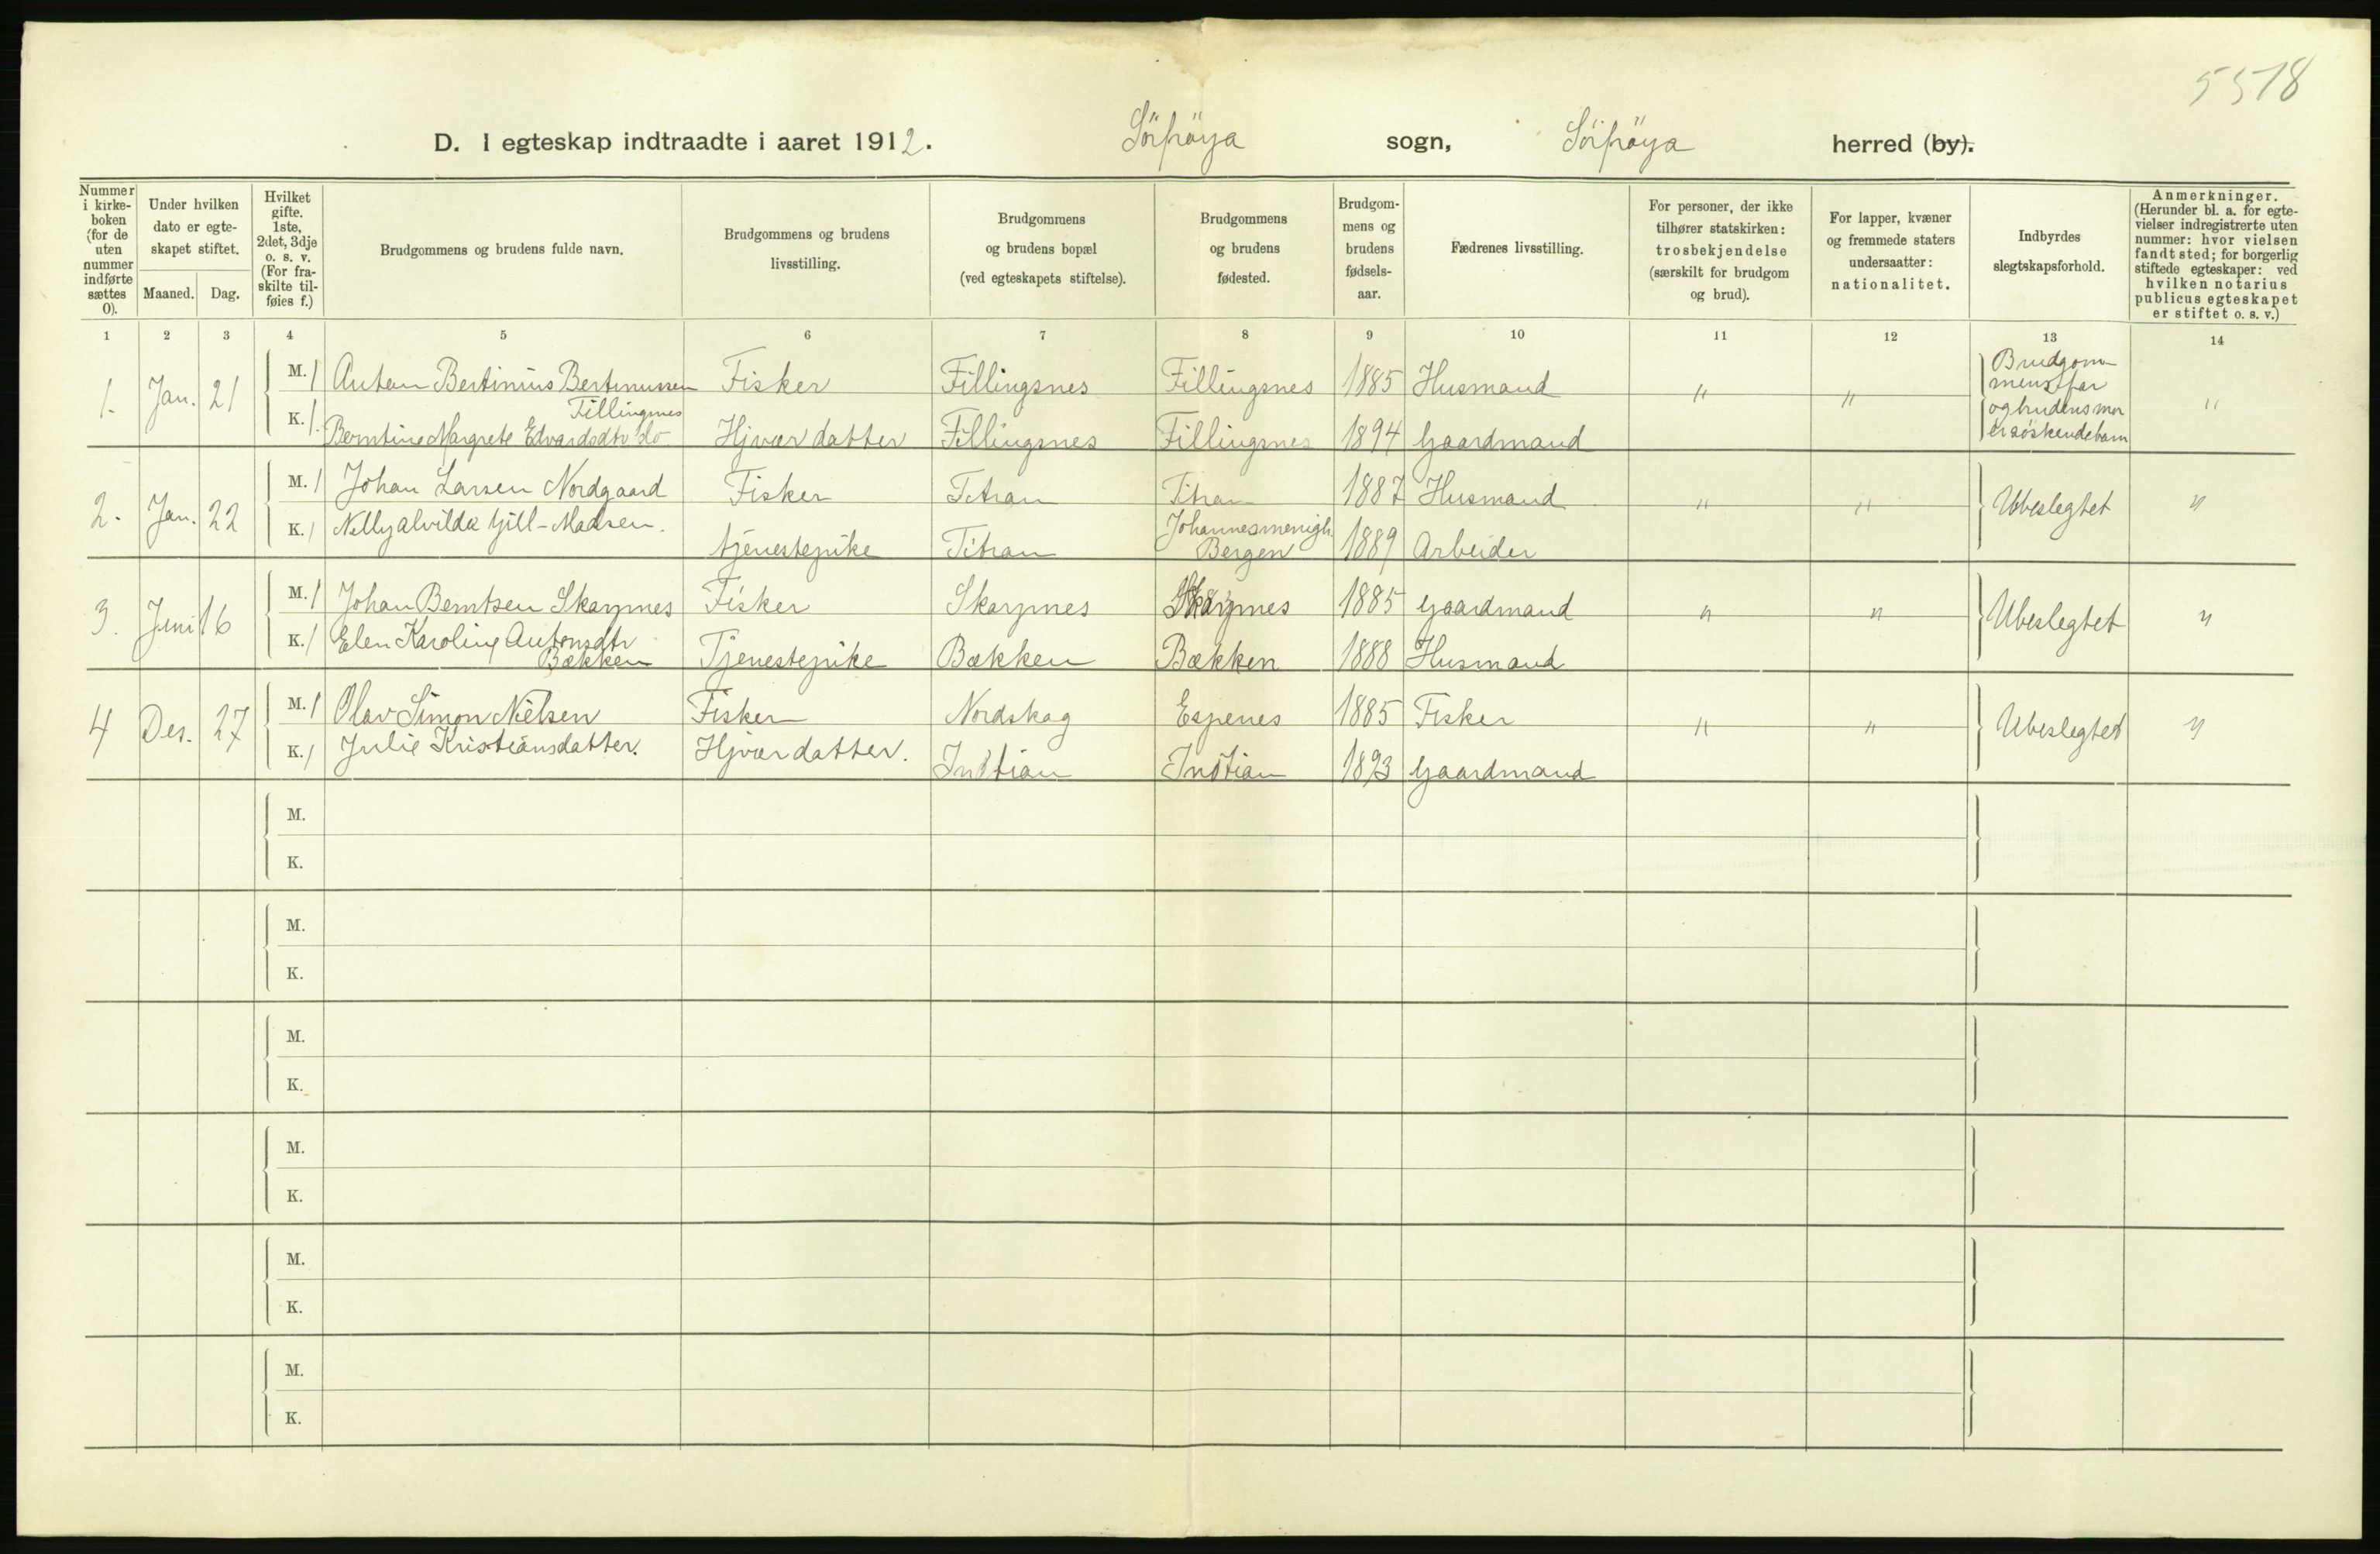 5578
D. I egteskap indtraadte i aaret 1912. Sörfröya sogn, Sörfröya herred (by).
Nummer i kirkeboken (for de uten nummer indførte sættes 0).
Under hvilken dato er egteskapet stiftet.
Maaned. Dag.
Hvilket gifte. 1ste, 2det, 3dje o. s. v. (For fraskilte tilføies f.)
Brudgommens og brudens fulde navn.
Brudgommens og brudens livsstilling.
Brudgommens og brudens bopæl (ved egteskapets stiftelse).
Brudgommens og brudens fødested.
Brudgommens og brudens fødselsaar.
Fædrenes livsstilling.
For personer, der ikke tilhører statskirken: trosbekjendelse (særskilt for brudgom og brud).
For lapper, kvæner og fremmede staters undersaatter: nationalitet.
Indbyrdes slegtskapsforhold.
Anmerkninger. (Herunder bl. a. for egtevielser indregistrerte uten nummer: hvor vielsen fandt sted; for borgerlig stiftede egteskaper: ved hvilken notarius publicus egteskapet er stiftet o. s. v.)
1 2 3 4 5 6 7 8 9 10 11 12 13 14
1. Jan. 21 M. 1 Anton Bertinius Bertinussen Fillingsnes Fisker Fillingsnes Fillingsnes 1885 Husmand " " Brudgommens far og brudens mor er søskendebarn "
K. 1. Berntine Margrete Edvardsdtr do Hjvær datter Fillingsnes Fillingsnes 1894 Gaardmand
2. Jan. 22 M. 1 Johan Larsen Nordgaard Fisker Titran Titran 1887 Husmand " " Ubeslegtet "
K. 1 Nelly Alvilde Gill-Madsen. tjenestepike Titran Johannesmenigh. Bergen 1889 Arbeider
3. Juni 16 M. 1 Johan Berntsen Skarpnes Fisker Skarpnes Skarpnes 1885 Gaardmand " " Ubeslegtet "
K. 1 Elen Karoline Antonsdtr Bækken Tjenestepike Bækken Bækken 1888 Husmand
4 Des. 27 M. 1 Olav Simon Nielsen Fisker Nordskag Espenes 1885 Fisker " " Ubeslegtet "
K. 1 Julie Kristiansdatter. Hjvær datter. Instian Instian 1893 Gaardmand
M.
K.
M.
K.
M.
K.
M.
K.
M.
K.
M.
K.